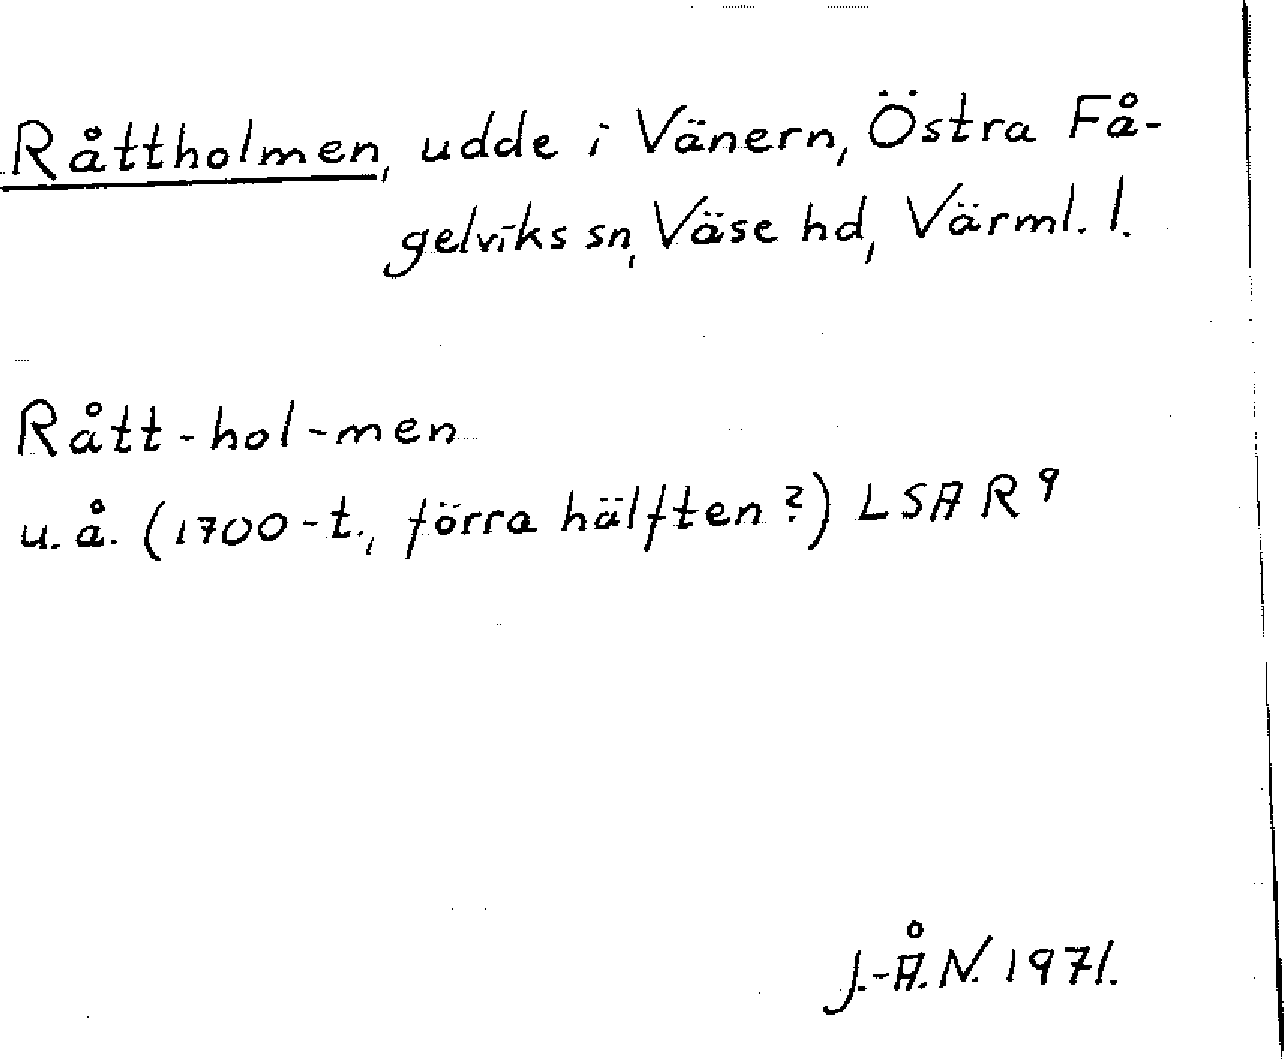 Råttholmen, udde i Vänern, Östra Få-
gelviks sn, Väse hd, Värml. l.
Rått-hol-men
u. å. (1700-t., förra hälften?) LSA R⁹
J.-Å. N. 1971.